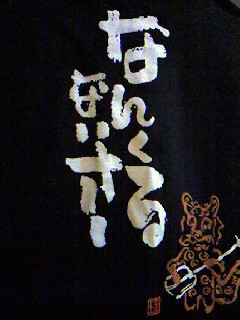 なんくる
ないサー